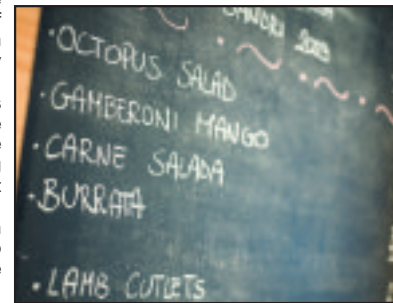 · OCTOPUS SALAD
· GAMBERONI MANGO
· CARNE SALADA
· BURRATA
· LAMB CUTLETS